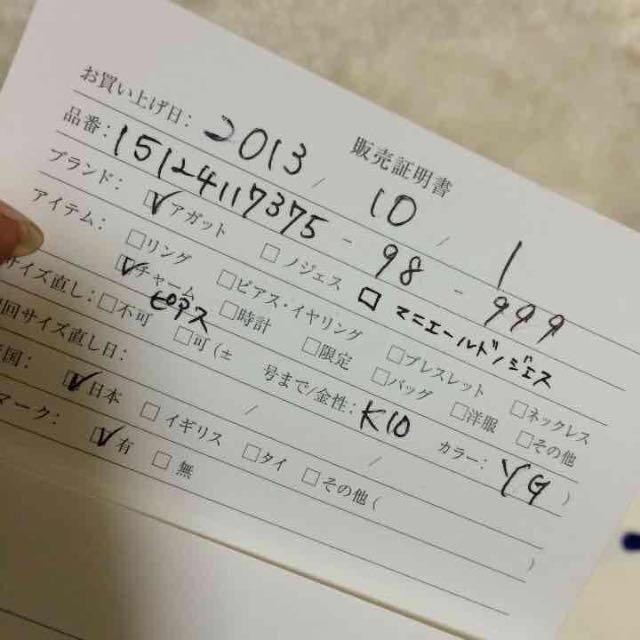 販売証明書
お買い上げ日: 2013 / 10 / 1
品番: 15124117375-98-999
ブランド: ☑アガット □ノジェス □マニエールドノジェス
アイテム: □リング □ピアス・イヤリング □ブレスレット □ネックレス
☑チャーム □時計 □限定 □バッグ □洋服 □その他
ピアス
サイズ直し: □不可 □可(± 号まで/金性: K10 カラー: YG )
回サイズ直し日: / /
国: ☑日本 □イギリス □タイ □その他( )
マーク: ☑有 □無